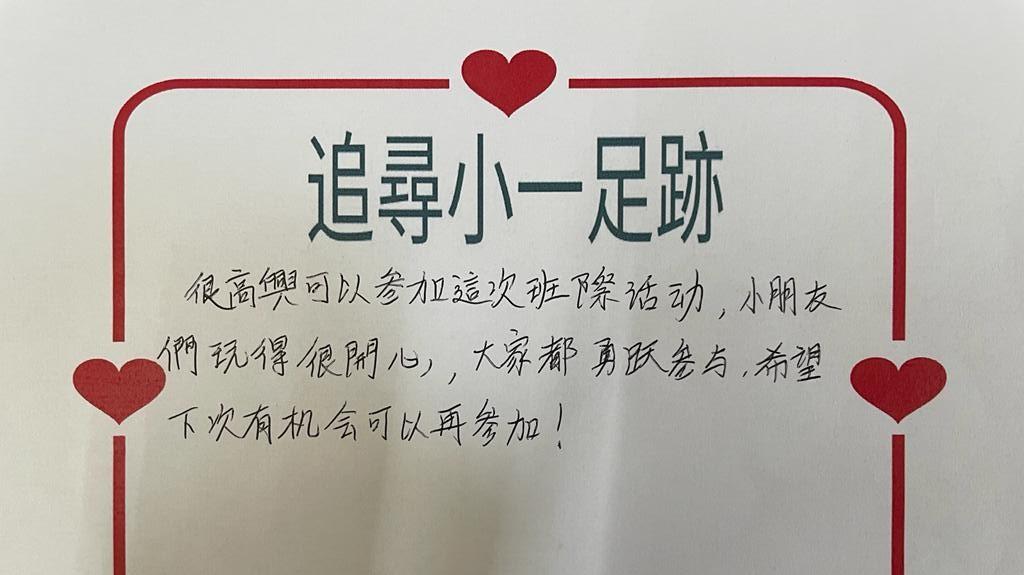 追尋小一足跡
很高興可以参加這次班際活动，小朋友
們玩得很開心，大家都勇跃参与，希望
下次有机会可以再参加！